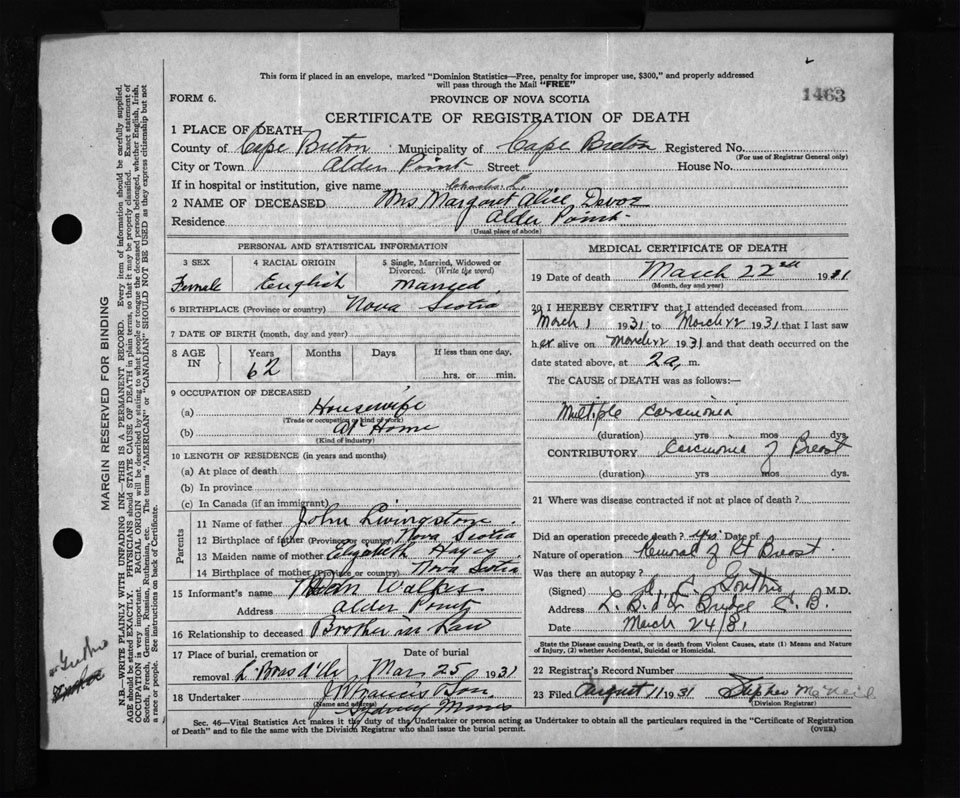 This form if placed in an envelope, marked "Dominion Statistics—Free, penalty for improper use, $300," and properly addressed
will pass through the Mail "FREE"
1463
FORM 6.
PROVINCE OF NOVA SCOTIA
CERTIFICATE OF REGISTRATION OF DEATH
1 PLACE OF DEATH—
County of Cape Breton Municipality of Cape Breton Registered No.
(For use of Registrar General only)
City or Town Alder Point Street House No.
If in hospital or institution, give name
2 NAME OF DECEASED Mrs Margaret Alice Devoe
Residence Alder Point
(Usual place of abode)
PERSONAL AND STATISTICAL INFORMATION
3 SEX Female
4 RACIAL ORIGIN English
5 Single, Married, Widowed or Divorced. (Write the word) Married
6 BIRTHPLACE (Province or country) Nova Scotia
7 DATE OF BIRTH (month, day and year)
8 AGE IN Years 62 Months Days If less than one day, hrs. or min.
9 OCCUPATION OF DECEASED
(a) Housewife
(Trade or occupation or kind of work)
(b) At Home
(Kind of industry)
10 LENGTH OF RESIDENCE (in years and months)
(a) At place of death
(b) In province
(c) In Canada (if an immigrant)
Parents
11 Name of father John Livingstone
12 Birthplace of father (Province or country) Nova Scotia
13 Maiden name of mother Elizabeth
14 Birthplace of mother (Province or country) Nova Scotia
15 Informant's name
Address Alder Point
16 Relationship to deceased Brother in Law
17 Place of burial, cremation or removal L. Bras d'Or Date of burial Mar 25 1931
18 Undertaker J. Francis & Son
(Name and address)
Sydney Mines
MEDICAL CERTIFICATE OF DEATH
19 Date of death March 22nd 1931
(Month, day and year)
20 I HEREBY CERTIFY that I attended deceased from
March 1 1931 to March 22 1931 that I last saw
her alive on March 22 1931 and that death occurred on the
date stated above, at 2 a. m.
The CAUSE of DEATH was as follows:—
Multiple Carcinonia
(duration) yrs mos dys.
CONTRIBUTORY Carcinonia of Breast
(duration) yrs mos dys.
21 Where was disease contracted if not at place of death?
Did an operation precede death? yes Date of
Nature of operation Removal of Rt Breast
Was there an autopsy?
(Signed) M.D.
Address C. B
Date March 24/31
State the Disease causing Death, or in death from Violent Causes, state (1) Means and
Nature of Injury, (2) whether Accidental, Suicidal or Homicidal.
22 Registrar's Record Number
23 Filed August 11 1931 Stephen McNeil
(Division Registrar)
Sec. 46—Vital Statistics Act makes it the duty of the Undertaker or person acting as Undertaker to obtain all the particulars required in the "Certificate of Registration
of Death" and to file the same with the Division Registrar who shall issue the burial permit.
(OVER)
MARGIN RESERVED FOR BINDING
N.B.—WRITE PLAINLY WITH UNFADING INK—THIS IS A PERMANENT RECORD. Every item of information should be carefully supplied.
AGE should be stated EXACTLY. PHYSICIANS should STATE CAUSE OF DEATH in plain terms, so that it may be properly classified. Exact statement of
OCCUPATION is very important. RACIAL ORIGIN will be described by stating to what people or tongue the deceased person belonged, whether English, Irish,
Scotch, French, German, Russian, Ruthenian, etc. The terms "AMERICAN" or "CANADIAN" SHOULD NOT BE USED as they express citizenship but not
a race or people. See instructions on back of Certificate.